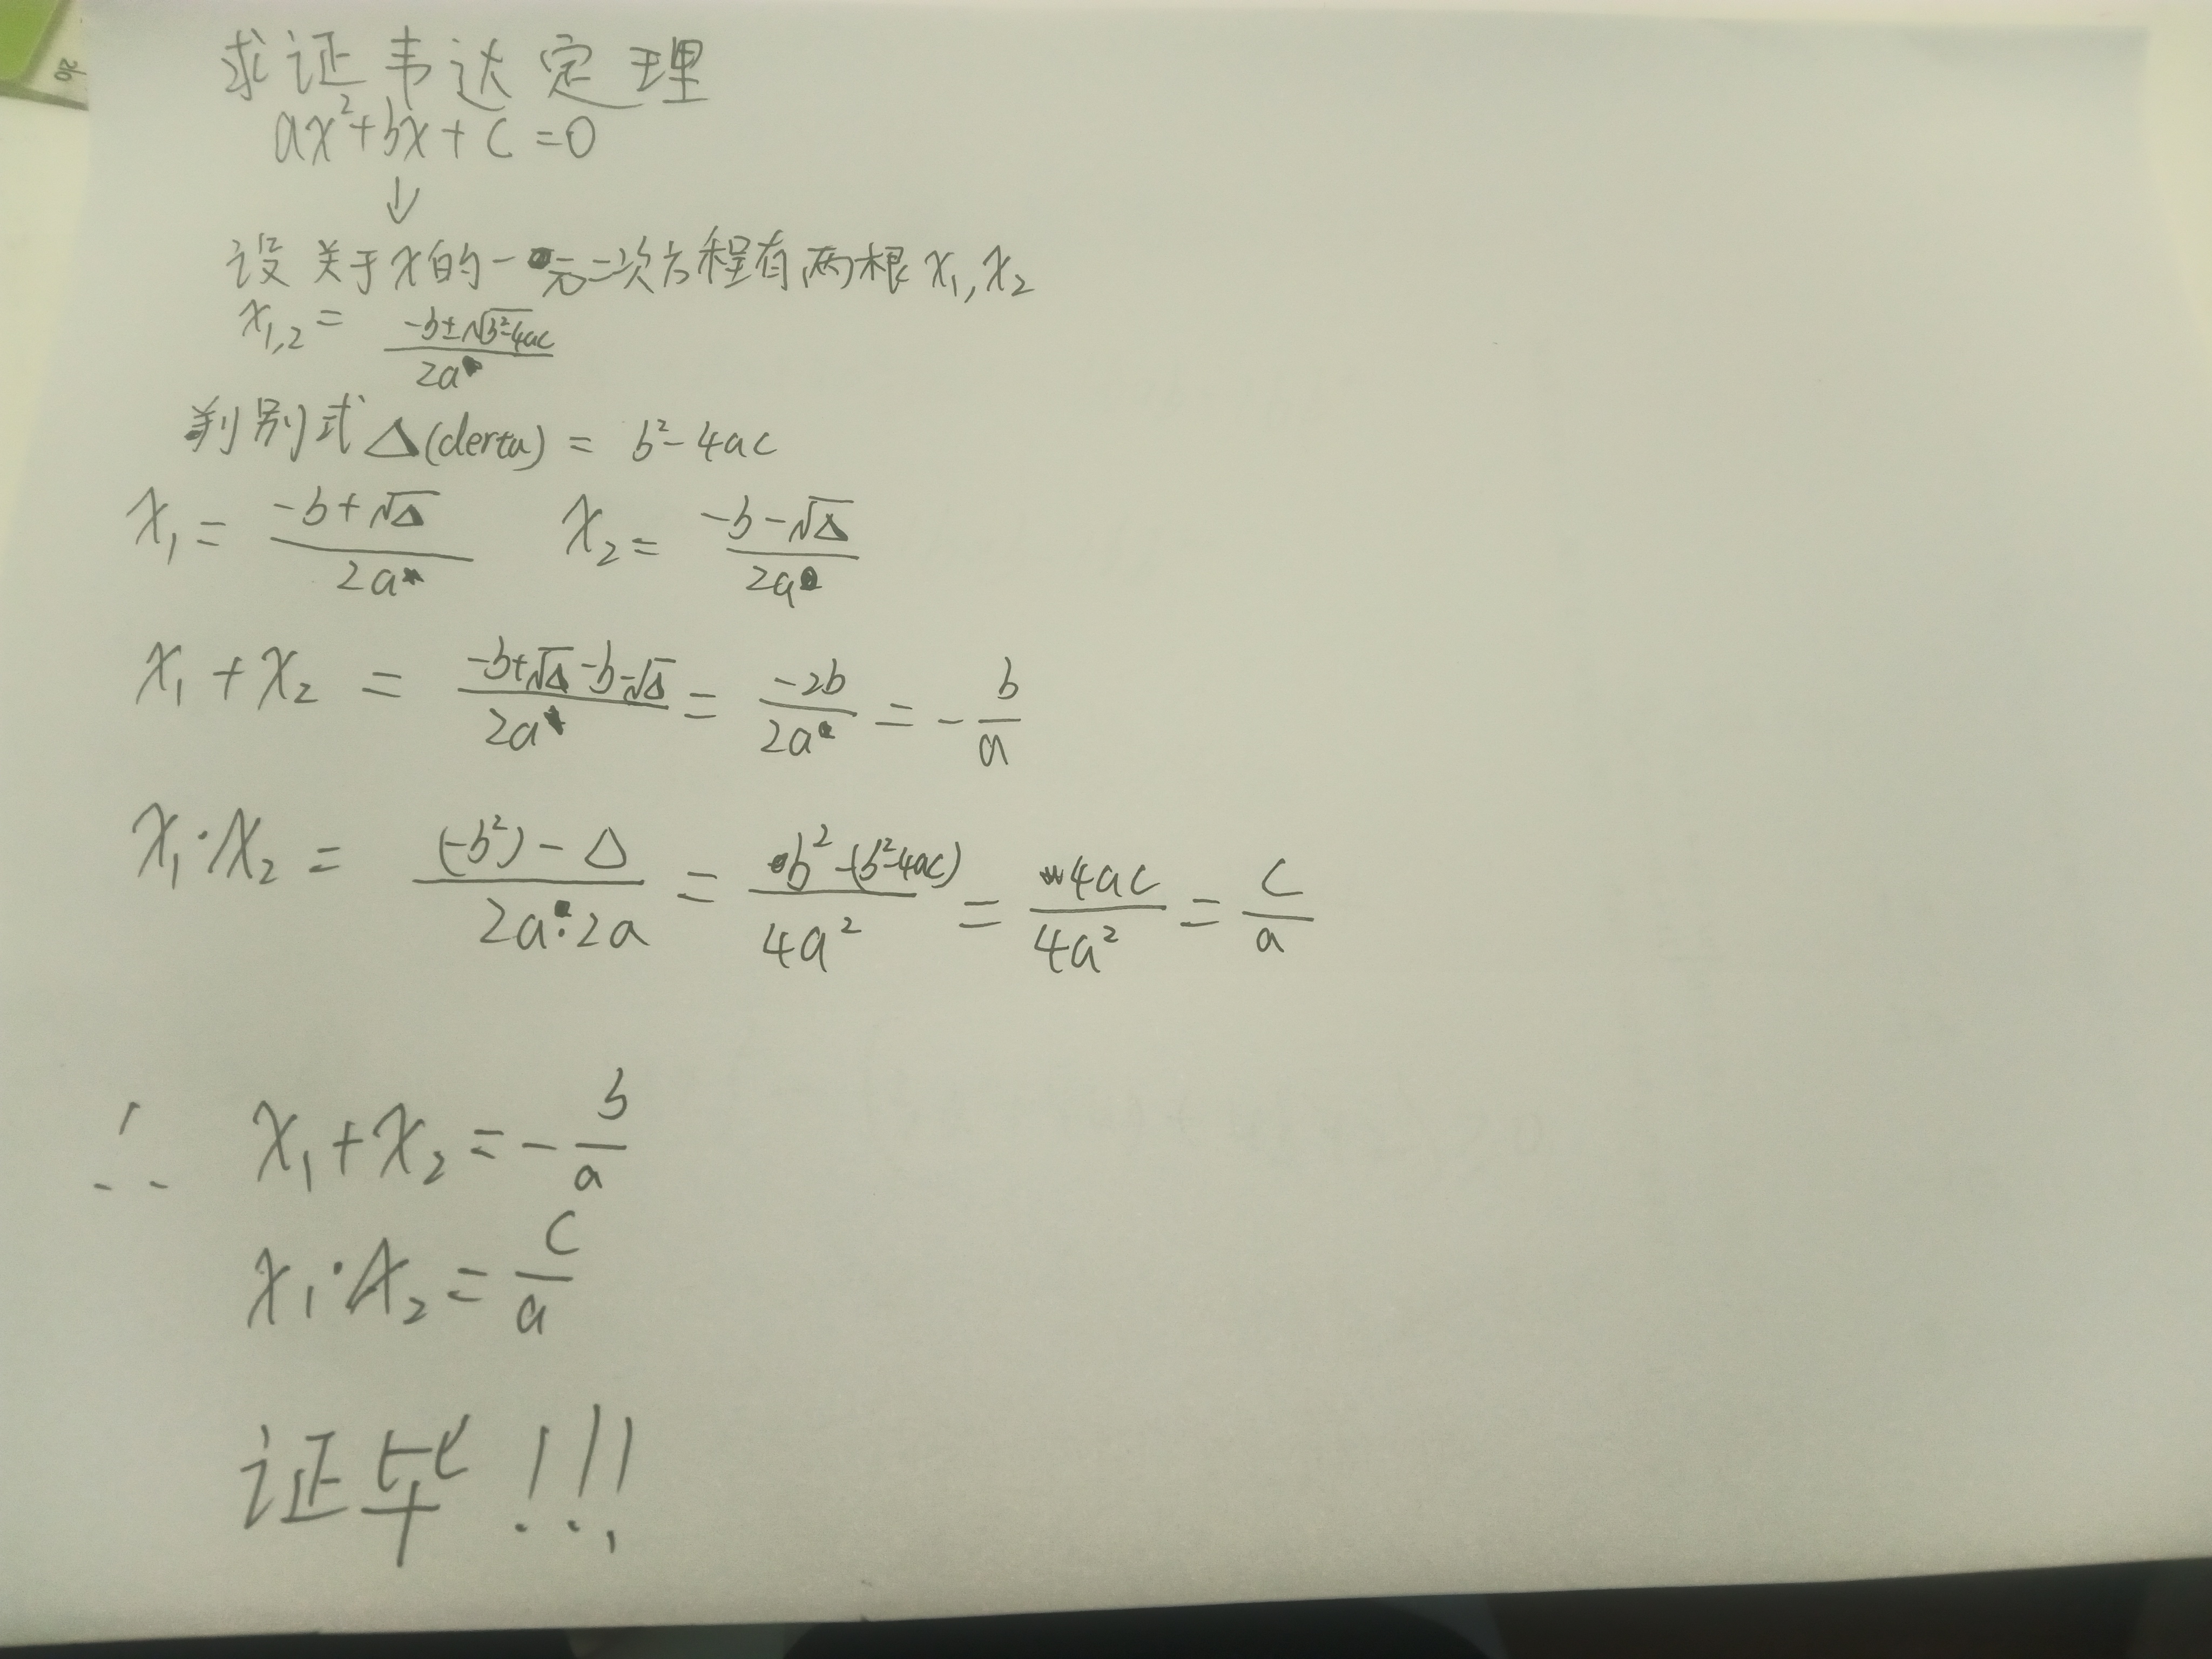 求证韦达定理
ax²+bx+c=0
↓
设关于x的一元二次方程有两根x₁,x₂
x₁,₂ = (-b±√(b²-4ac))/2a
判别式△(derta) = b²-4ac
x₁ = (-b+√△)/2a x₂ = (-b-√△)/2a
x₁+x₂ = (-b+√△-b-√△)/2a = -2b/2a = -b/a
x₁·x₂ = ((-b²)-△)/(2a·2a) = (b²-(b²-4ac))/4a² = 4ac/4a² = c/a
∴ x₁+x₂ = -b/a
x₁·x₂ = c/a
证毕!!!